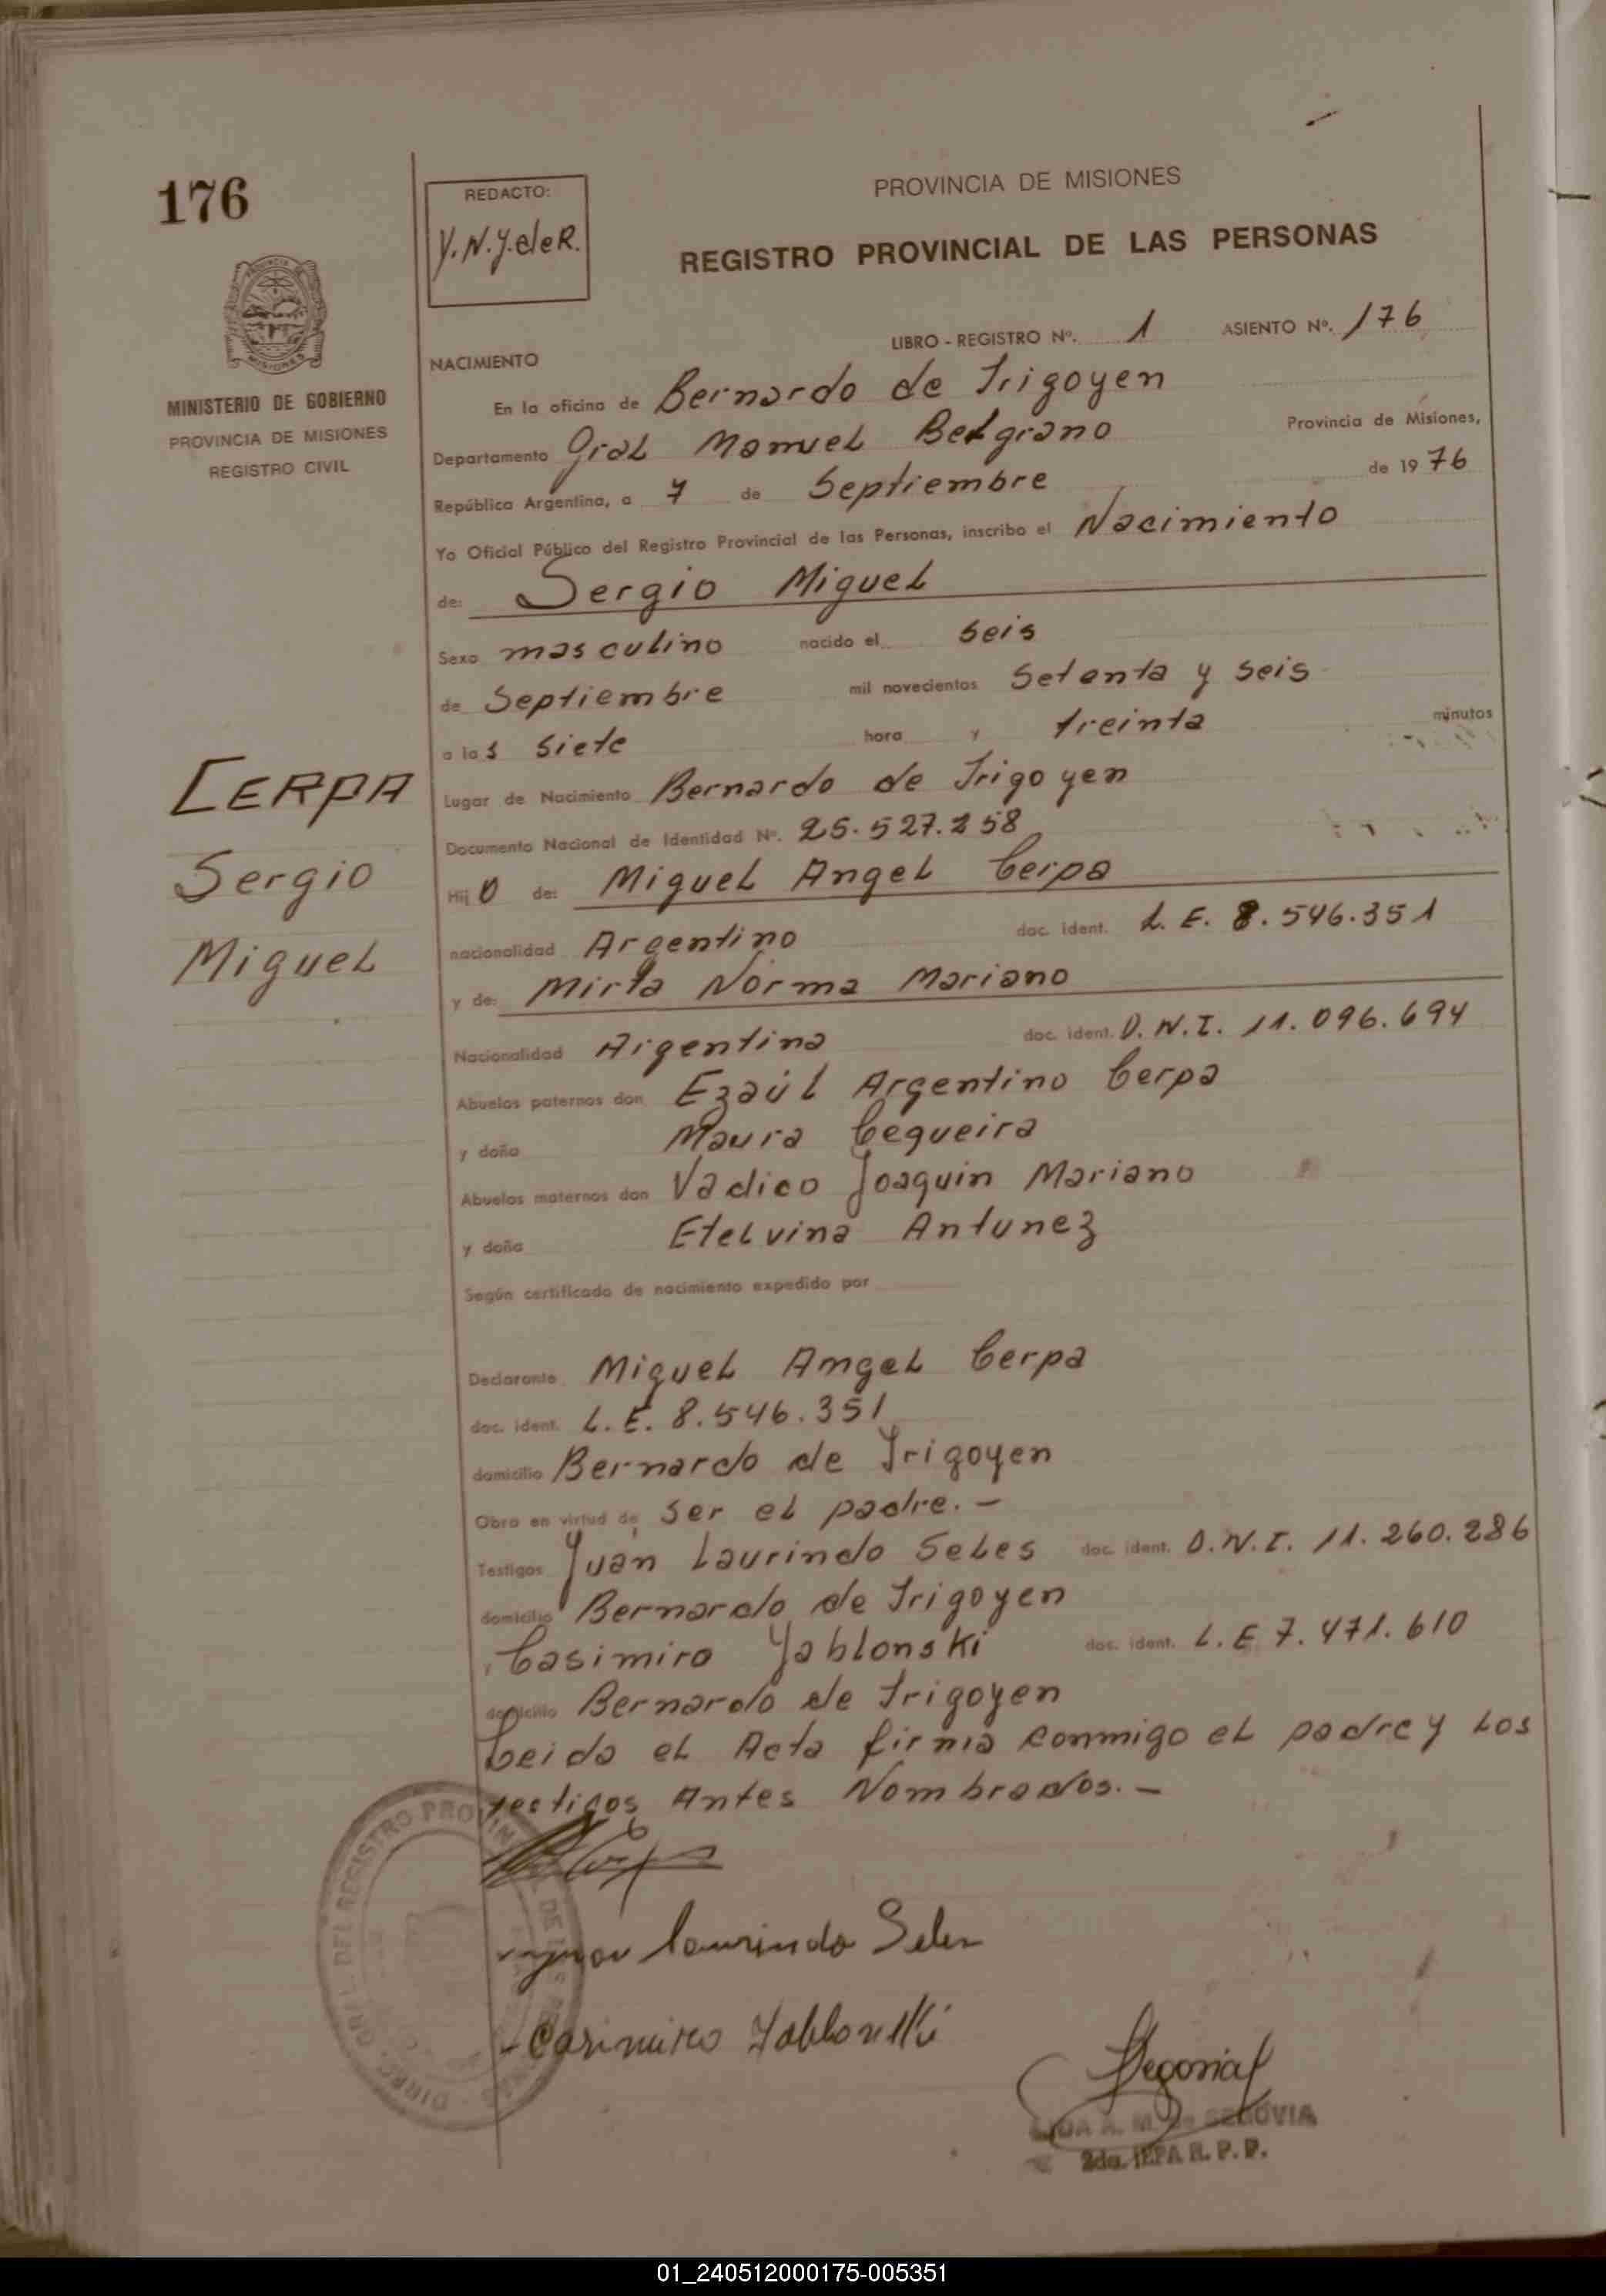 176
REDACTO:
Y.N.Y.deR.
PROVINCIA DE MISIONES
REGISTRO PROVINCIAL DE LAS PERSONAS
MINISTERIO DE GOBIERNO
PROVINCIA DE MISIONES
REGISTRO CIVIL
LIBRO - REGISTRO Nº. 1 ASIENTO Nº. 176
NACIMIENTO
En la oficina de Bernardo de Irigoyen
Departamento Gral Manuel Belgrano Provincia de Misiones,
República Argentina, a 7 de Septiembre de 1976
Yo Oficial Público del Registro Provincial de las Personas, inscribo el Nacimiento
de: Sergio Miguel
Sexo masculino nacido el seis
de Septiembre mil novecientos Setenta y seis
a las siete hora y treinta minutos
CERPA
Sergio
Miguel
Lugar de Nacimiento Bernardo de Irigoyen
Documento Nacional de Identidad Nº. 25.527.258
Hijo de: Miguel Angel Cerpa
nacionalidad Argentino doc. ident. L.E. 8.546.351
y de: Mirta Norma Mariano
Nacionalidad Argentina doc. ident. D.N.I. 11.096.694
Abuelos paternos don Ezaúl Argentino Cerpa
y doña Maura Cequeira
Abuelos maternos don Vadico Joaquin Mariano
y doña Etelvina Antunez
Según certificado de nacimiento expedido por
Declarante Miguel Amgel Cerpa
doc. ident. L.E. 8.546.351
domicilio Bernardo de Irigoyen
Obra en virtud de ser el padre.-
Testigos Juan Laurindo Seles doc. ident. D.N.I. 11.260.286
domicilio Bernardo de Irigoyen
Casimiro Yablonski doc. ident. L.E 7.471.610
domicilio Bernardo de Irigoyen
Leida el Acta firma conmigo el padre y los
testigos Antes Nombrados.-
Laurindo Seles
Casimiro Yablonski
Segovia
A. M. de SEGOVIA
2da. JEFA R. P. P.
DIREC. GRAL. DEL REGISTRO PROVINCIAL DE LAS PERSONAS
01_240512000175-005351